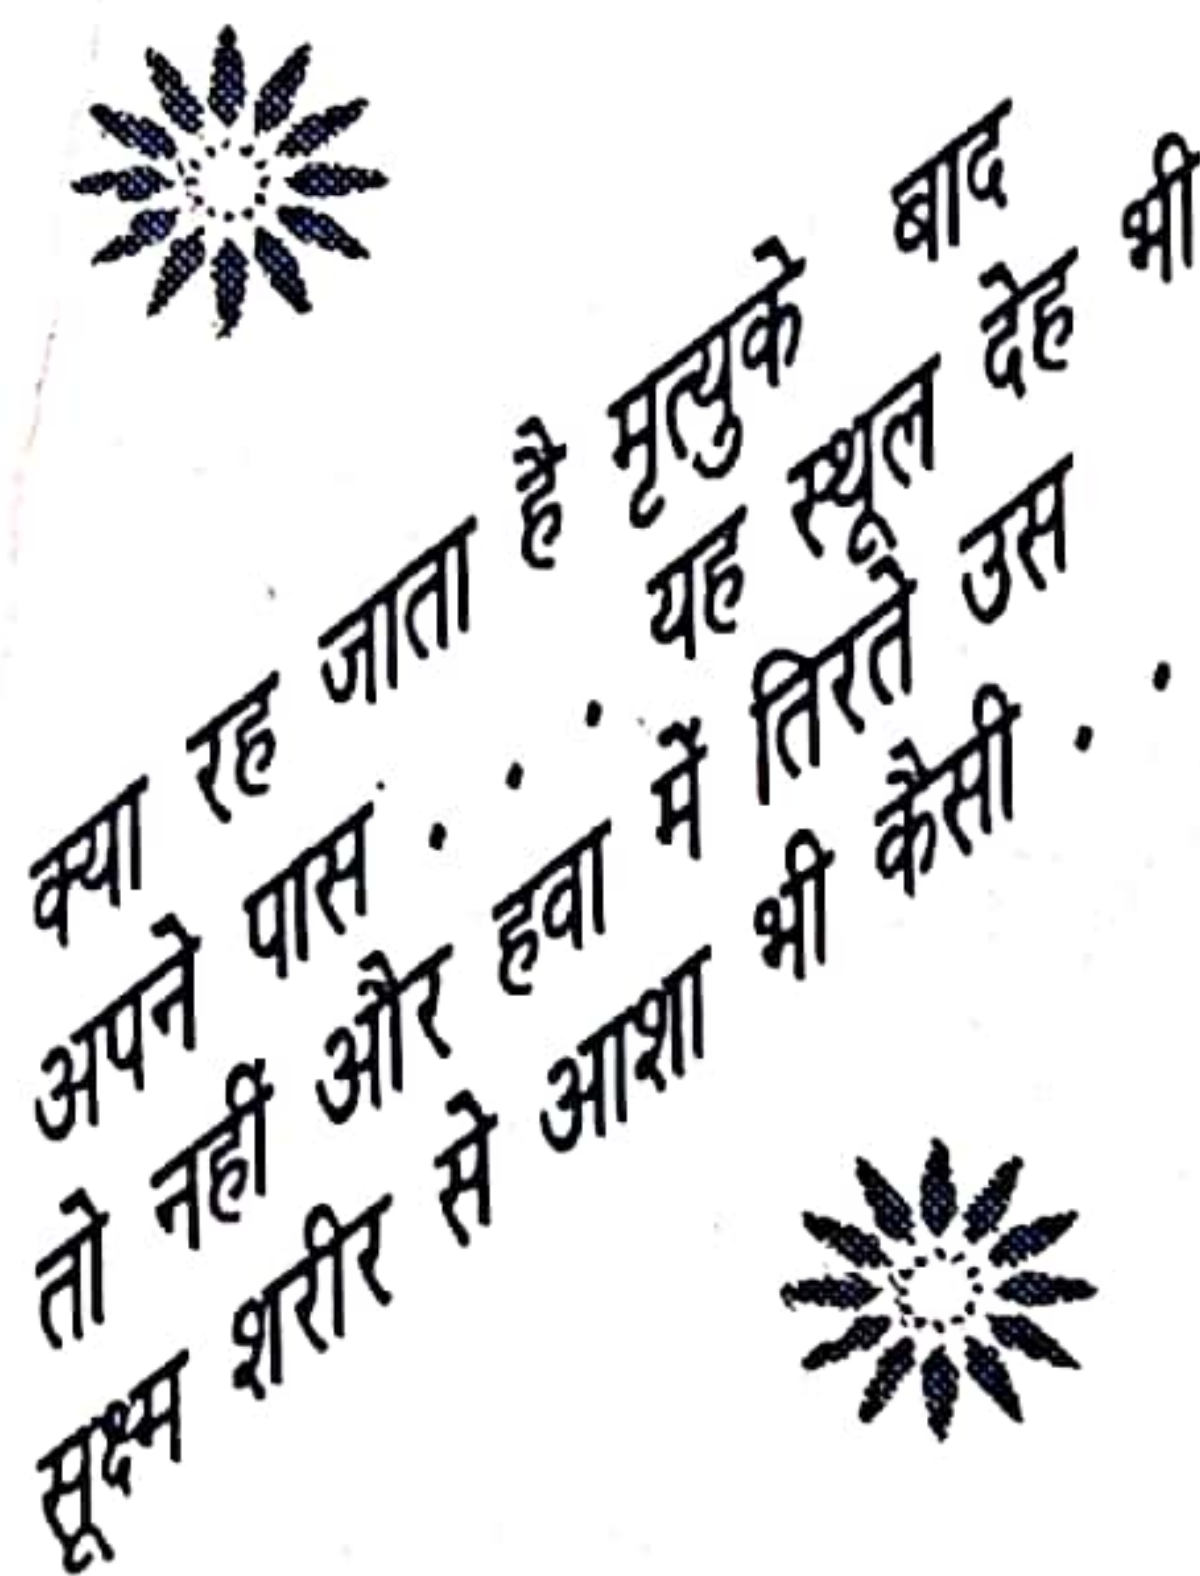 क्या रह जाता है मृत्युके बाद
अपने पास . . . यह स्थूल देह भी
तो नहीं और हवा में तिरते उस
सूक्ष्म शरीर से आशा भी कैसी . .